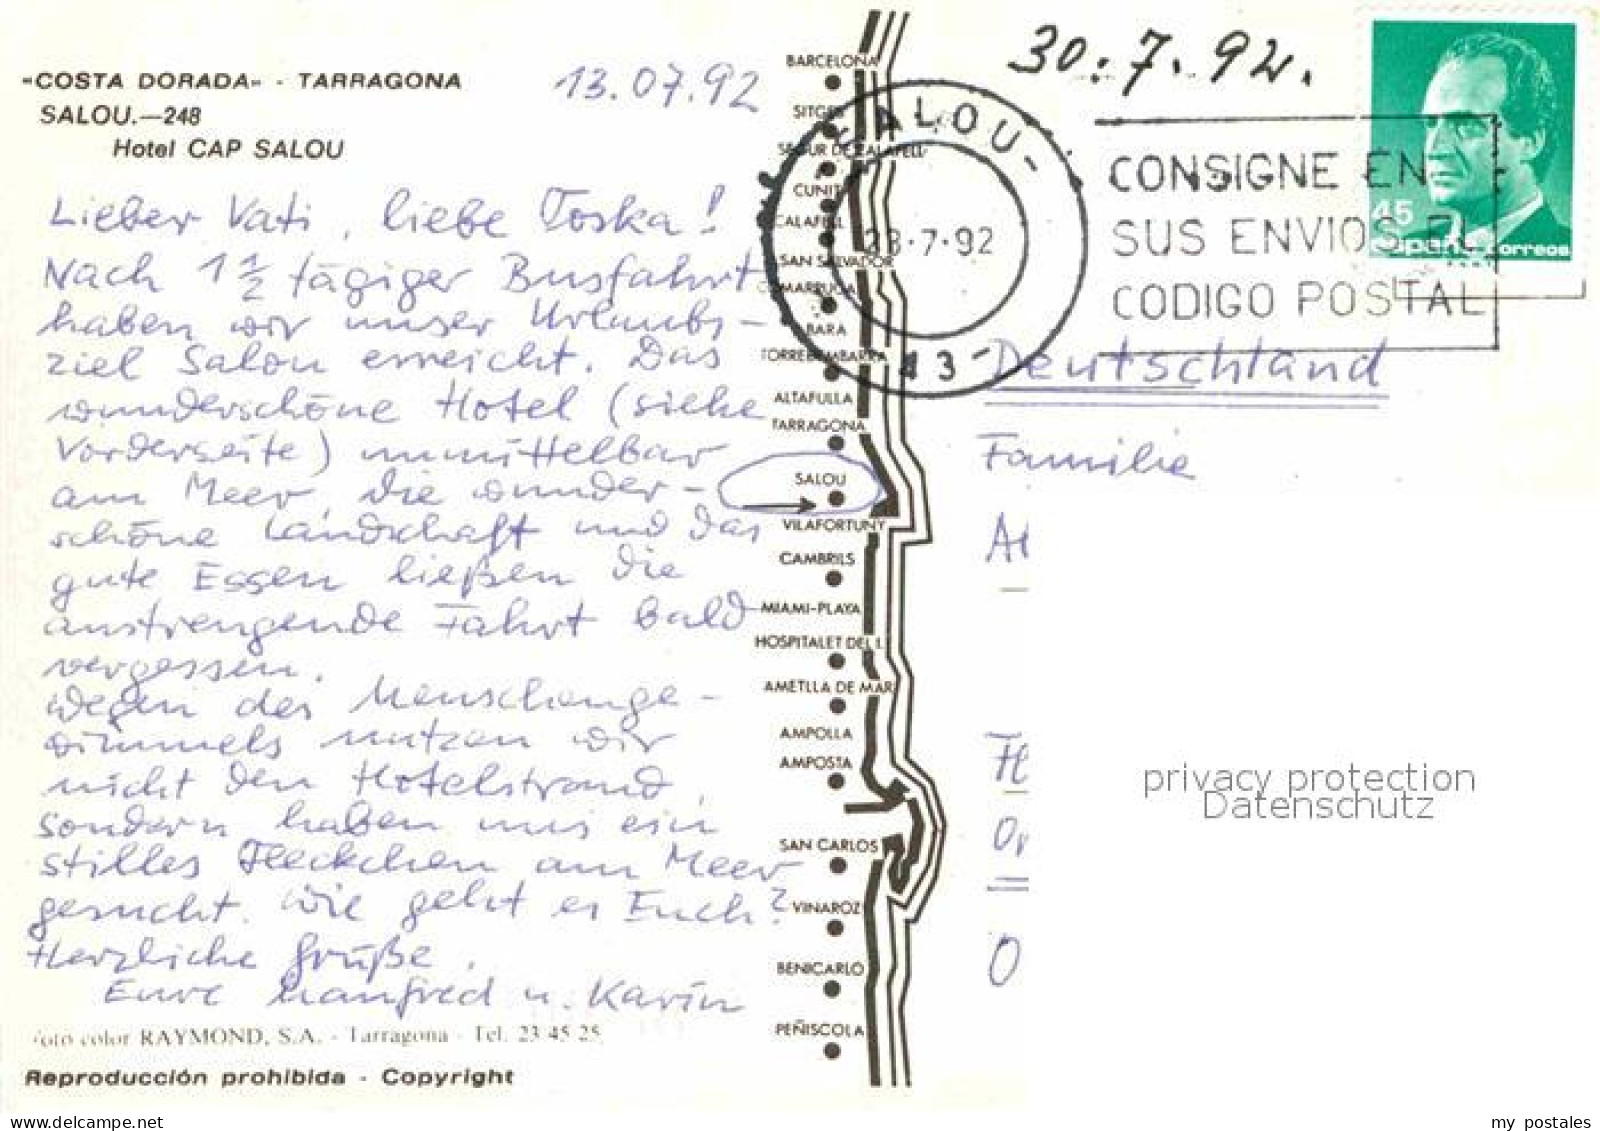 "COSTA DORADA" - TARRAGONA
SALOU.—248
Hotel CAP SALOU
13.07.92
Lieber Vati, liebe Toska!
Nach 1 1/2 tägiger Busfahrt
haben wir unser Urlaubs-
ziel Salou erreicht. Das
wunderschöne Hotel (siehe
Vorderseite) unmittelbar
am Meer, die wunder-
schöne Landschaft und das
gute Essen ließen die
anstrengende Fahrt bald
vergessen.
Wegen des Menschenge-
wimmels nutzen wir
nicht den Hotelstrand,
sondern haben uns ein
stilles Fleckchen am Meer
gesucht. Wie geht es Euch?
Herzliche Grüße,
Eure Manfred u. Karin
Foto color RAYMOND, S.A. - Tarragona - Tel. 23 45 25
Reproducción prohibida - Copyright
BARCELONA
SITGES
SEGUR DE CALAFELL
CUNIT
CALAFELL
SAN SALVADOR
COMARRUGA
BARA
TORREDEMBARRA
ALTAFULLA
TARRAGONA
SALOU
VILAFORTUNY
CAMBRILS
MIAMI-PLAYA
HOSPITALET DEL I.
AMETLLA DE MAR
AMPOLLA
AMPOSTA
SAN CARLOS
VINAROZ
BENICARLO
PEÑISCOLA
30.7.92.
SALOU-
28-7-92
43-
CONSIGNE EN
SUS ENVIOS EL
CODIGO POSTAL
45
españa correos
Deutschland
Familie
privacy protection
Datenschutz
my_postales